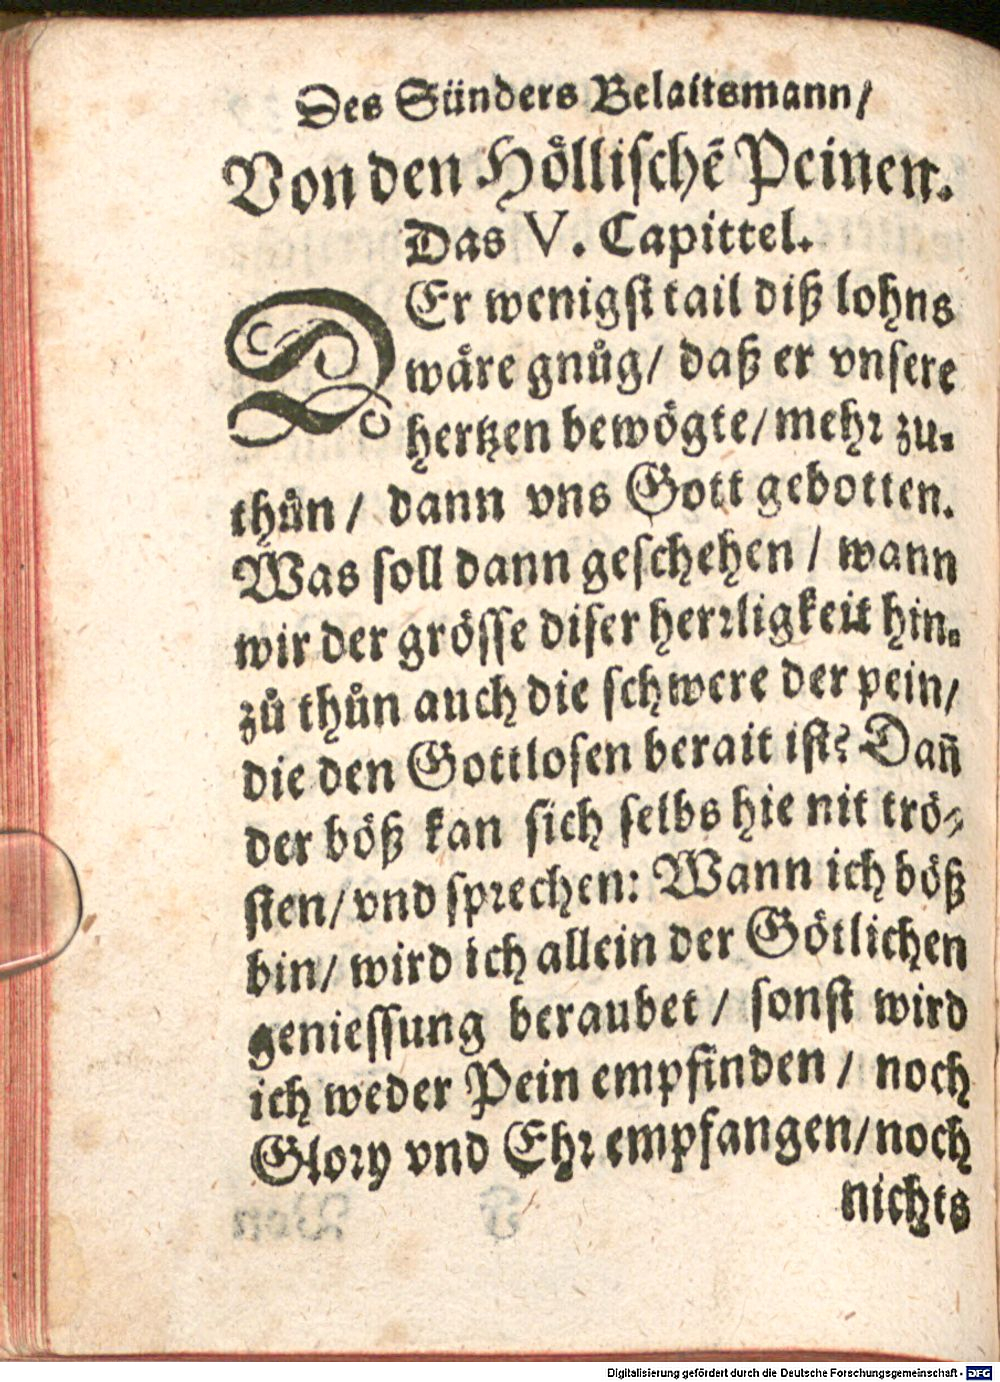 Des Sünders Belaitsmann/
Von den Höllischẽ Peinen.
Das V. Capittel.
DEr wenigst tail diß lohns
wåre gnůg/ daß er vnsere
hertzen bewögte/ mehr zu-
thůn/ dann vns Gott gebotten.
Was soll dann geschehen / wann
wir der grösse diser herrligkeit hin-
zů thůn auch die schwere der pein/
die den Gottlosen berait ist? Dañ
der böß kan sich selbs hie nit trö-
sten/ vnd sprechen: Wann ich böß
bin/ wird ich allein der Götlichen
geniessung beraubet / sonst wird
ich weder Pein empfinden / noch
Glory vnd Ehr empfangen/ noch
nichts
Digitalisierung gefördert durch die Deutsche Forschungsgemeinschaft - DFG